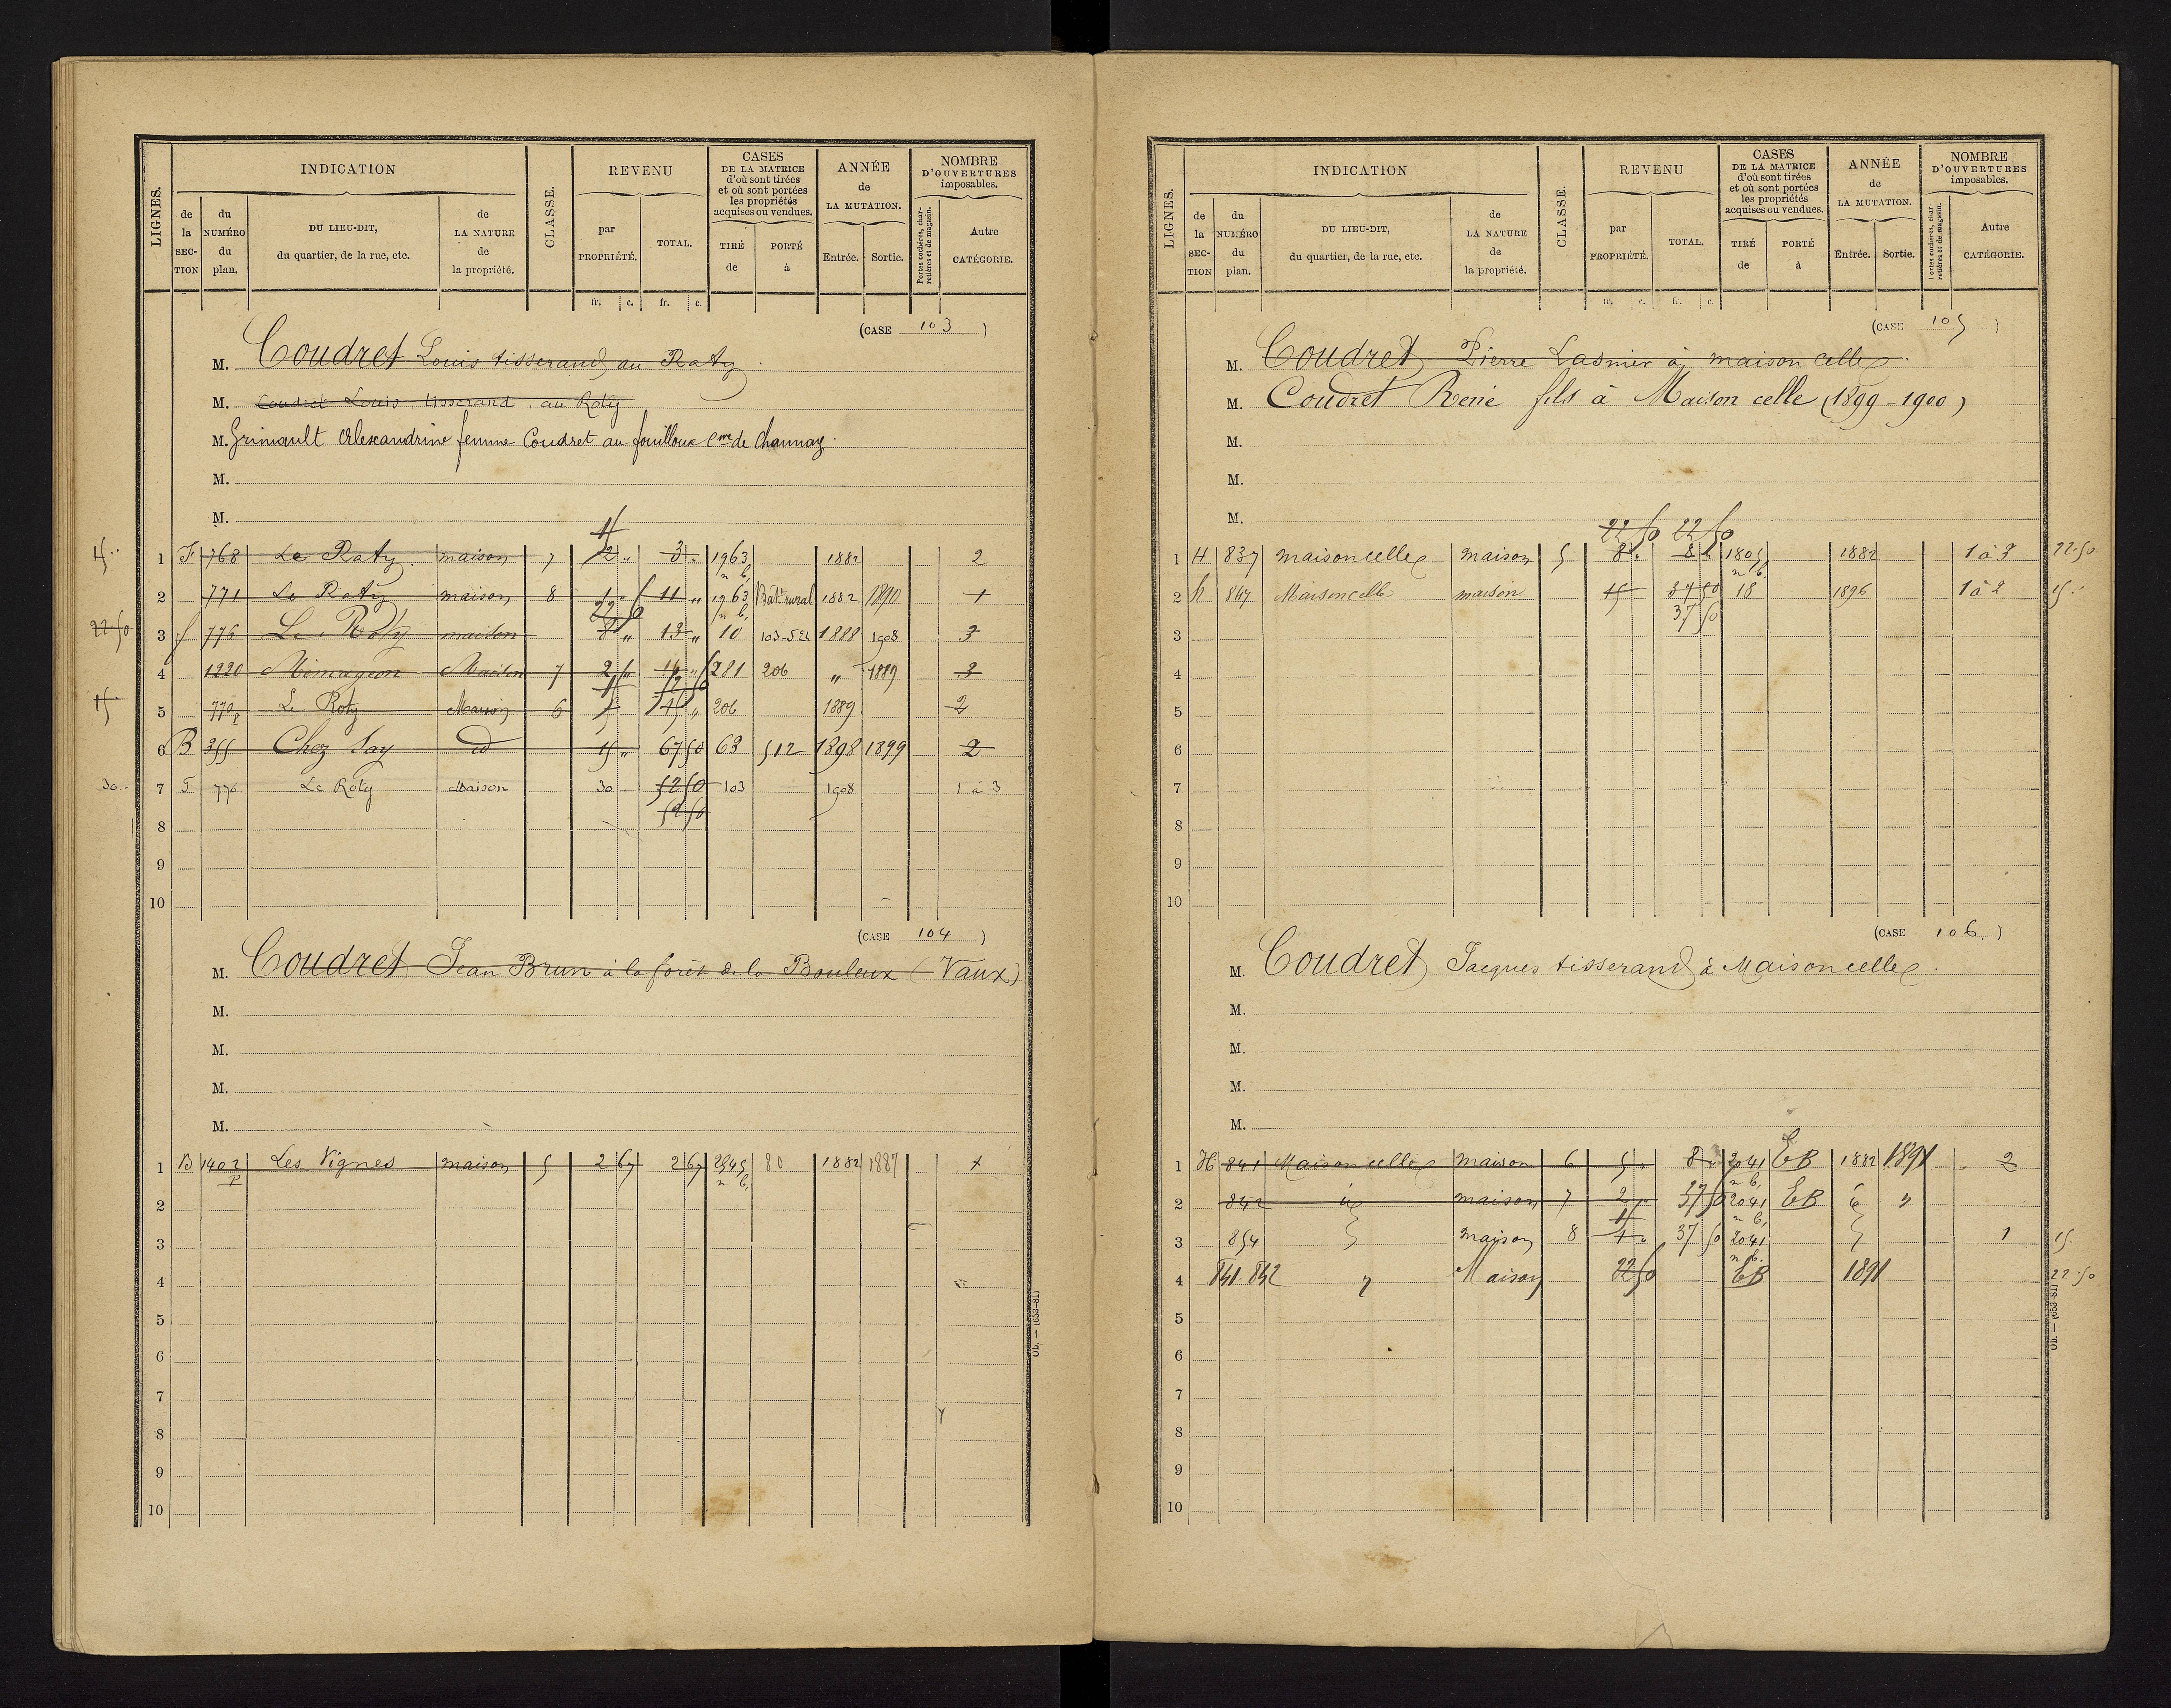 LIGNES. INDICATION CLASSE. REVENU CASES DE LA MATRICE d'où sont tirées et où sont portées les propriétés acquises ou vendues. ANNÉE de LA MUTATION. NOMBRE D'OUVERTURES imposables.
de la SECTION du NUMÉRO du plan. DU LIEU-DIT, du quartier, de la rue, etc. de LA NATURE de la propriété. par PROPRIÉTÉ. TOTAL. TIRÉ de PORTÉ à Entrée. Sortie. Portes cochères, charretières et de magasin. Autre CATÉGORIE.
fr. c. fr. c.
(CASE 103 )
M. Coudret Louis tisserand au Raty
M. Coudret Louis tisserand au Roty
M. Grimault Alexandrine femme Coudret au fouilloux Cne de Chaunay.
M.
M.
15 1 F 768 Le Raty maison 7 2 " 3 " 1963 n b, 1882 2
2 771 Le Raty maison 8 11 " 1963 n b, Bât rural 1882 1890 1
22 50 3 f 776 Le Roty maison 22 50 8 " 13 " 10 1888 1908 3
4 1220 Maison 7 2 281 206 " 1889 3
15 5 770 p Le Roty Maison 6 206 1889 2
6 B 355 Chez Say id 15 " 67 50 63 512 1898 1899 2
30 7 F 776 Le Roty Maison 30 52 50 103 1908 1 à 3
52 50
8
9
10
(CASE 104 )
M. Coudret Jean Brun à la forêt de la Bouleux (Vaux)
M.
M.
M.
M.
1 B 1402 p Les Vignes maison 5 2 67 2 67 n b, 80 1882 1887
2
3
4
5
6
7
8
9
10
LIGNES. INDICATION CLASSE. REVENU CASES DE LA MATRICE d'où sont tirées et où sont portées les propriétés acquises ou vendues. ANNÉE de LA MUTATION. NOMBRE D'OUVERTURES imposables.
de la SECTION du NUMÉRO du plan. DU LIEU-DIT, du quartier, de la rue, etc. de LA NATURE de la propriété. par PROPRIÉTÉ. TOTAL. TIRÉ de PORTÉ à Entrée. Sortie. Portes cochères, charretières et de magasin. Autre CATÉGORIE.
fr. c. fr. c.
(CASE 105 )
M. Coudret Pierre Lasnier à maison celles.
M. Coudret René fils à Maison celle (1899-1900)
M.
M.
M.
22 50 22 50
1 H 837 maisoncelles maison 5 8 " 8 " 1805 n b. 1882 1 à 3 22.50
2 h 847 Maisoncelle maison 15 37 50 18 1896 1 à 2 15
37 50
3
4
5
6
7
8
9
10
(CASE 106. )
M. Coudret Jacques tisserand à Maisoncelles.
M.
M.
M.
M.
1 H 841 Maisoncelles maison 6 5 " 8 " 2041 n b, EB 1882 1891 2
2 842 id maison 7 2 " 37 50 2041 n b, EB id "
3 854 maison 8 37 50 2041 n b. 1 15
4 841 842 " Maison 22 50 EB 1891 22.50
5
6
7
8
9
10